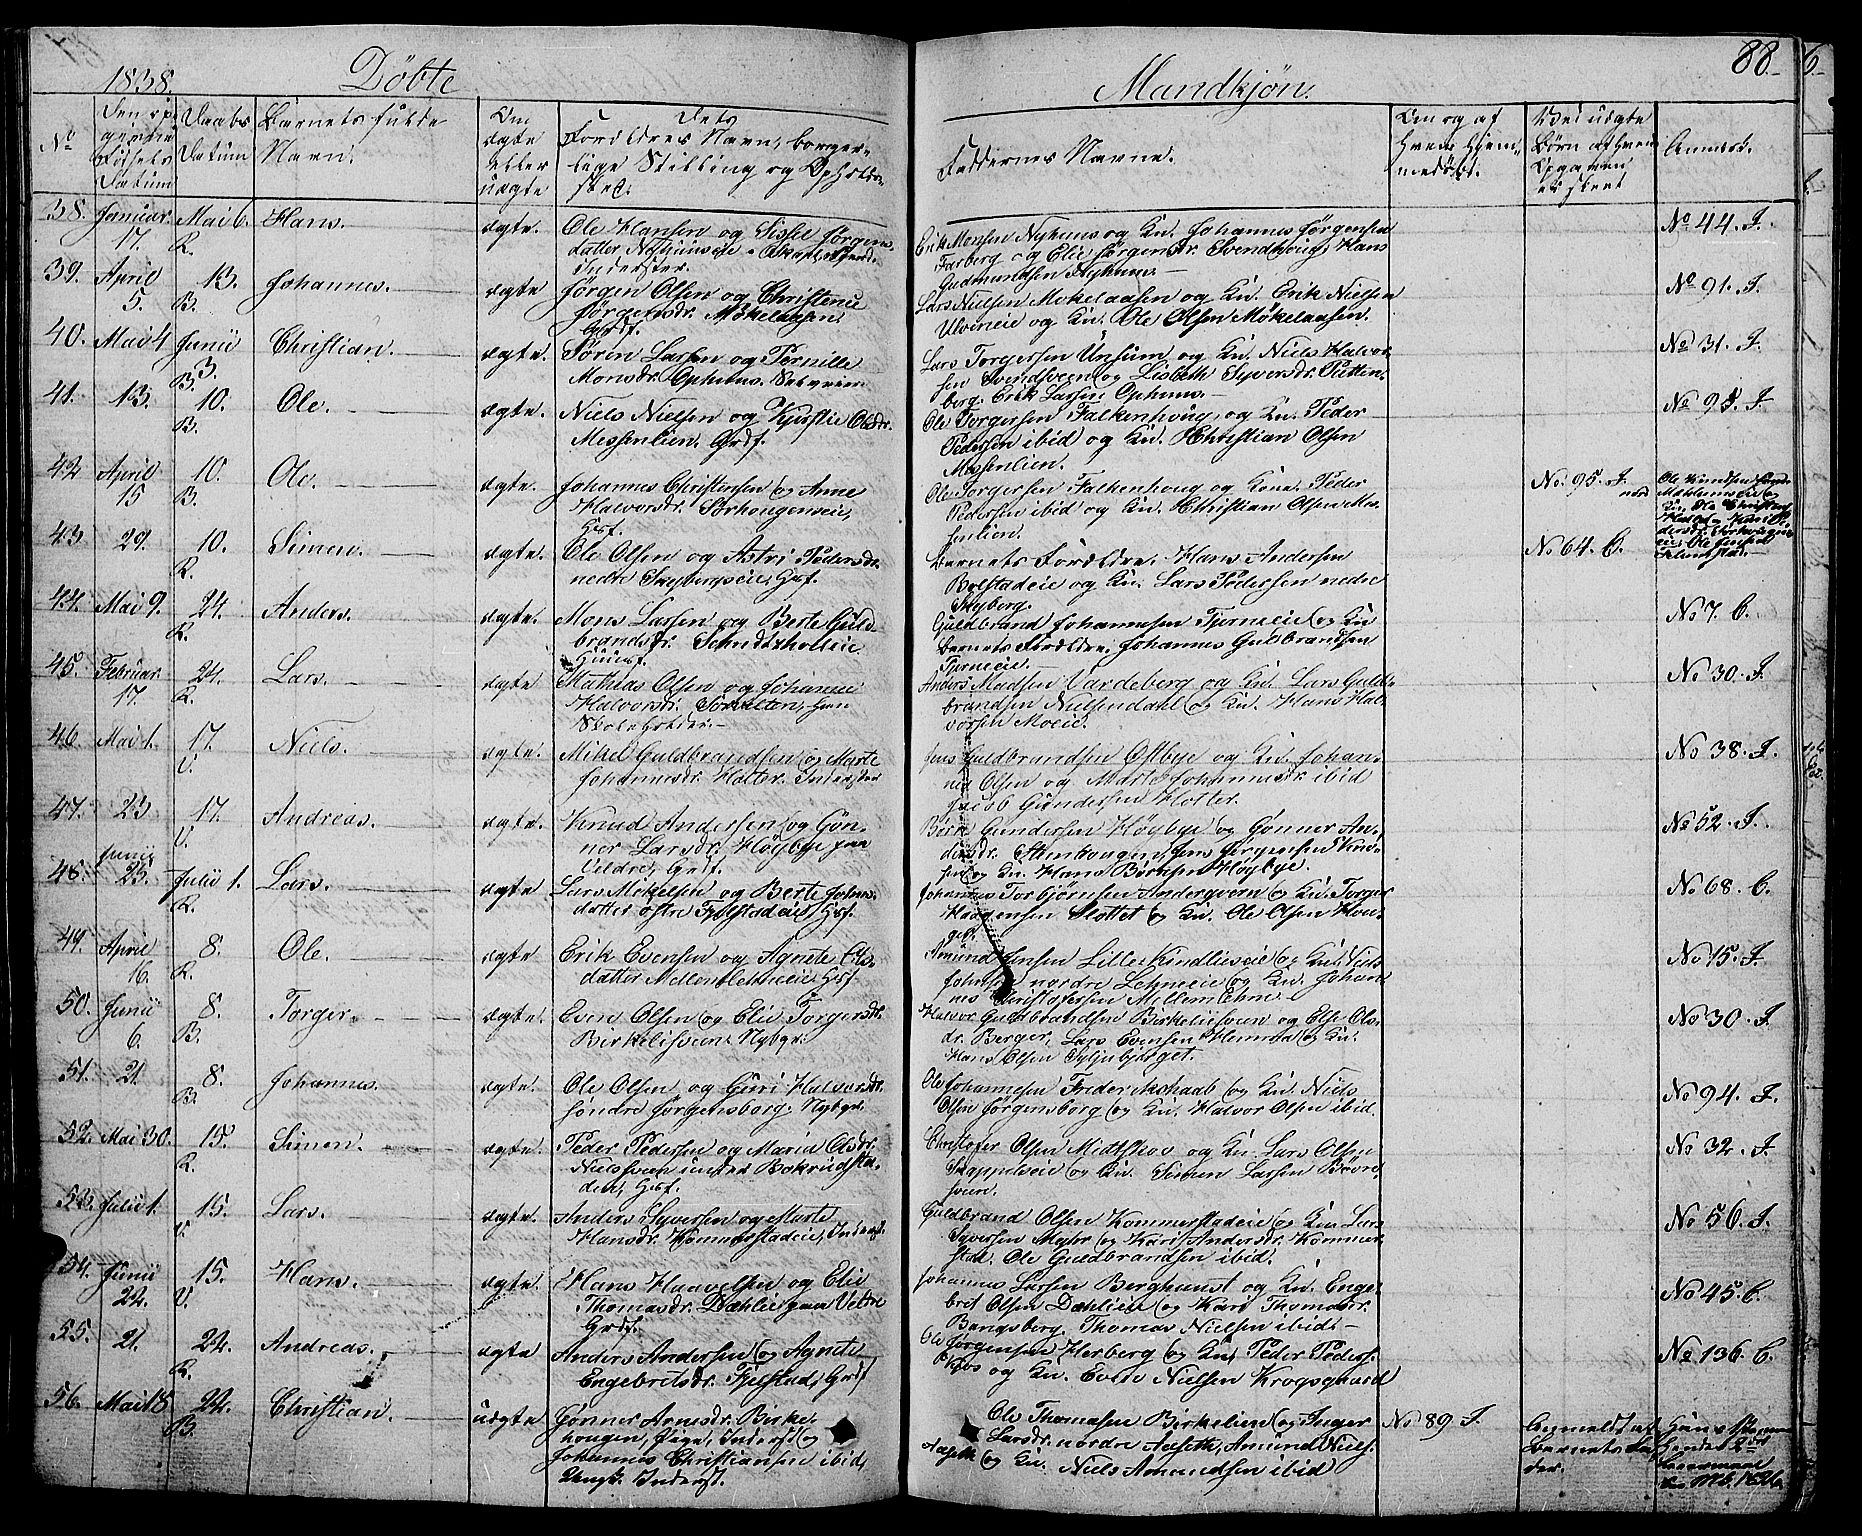 1838. Döbte Mandkjön. 88.
No
Daabs
Datum
Barnets fulde
Navn.
Om
ægte
eller
uægte
Dets
Forældres Navn, borger-
lige Stilling og
Faddernes Navne.
Anmærk.
38. Januar 17. Mai 6. R. Hans. ægte. Ole Hansen og Sissel Jörgens-
datter
Erik Monsen Nyhuus og Kn. Johannes Jörgensen
Farberg og Elie Jörgensdr. Svendhoug, Hans
Gudmundsen Nyhuus.
No 44. J.
39. April 5. 13. B. Johannes. ægte Jörgen Olsen og Christence
Jörgensdr. Mökelaasen.
Grdf.
Lars Nielsen Mökelaasen og Kn. Erik Nielsen
Ulveneie og Kn. Ole Olsen Mökelaasen.
No 91. J.
40. Mai 4 Junii 3. B. Christian. ægte. Sören Larsen og Pernille
Monsdr. Ophuus.
Lars Torgersen Unsum og Kn. Niels Halvor-
sen Svendsveen og Lisbeth Syversdr. Putten-
berg. Erik Larsen Ophuus.
No 31. J.
41. 13. 10. B. Ole. ægte. Niels Nielsen og Kjerstie Olsdr.
Messenlien. Grdf.
Ole Torgersen Falkenhoug og Kn. Peder
Pedersen ibid og Kn. Christian Olsen
Messenlien.
42 April 15 10. B. Ole. ægte. Johannes Christensen og Anne
Halvorsdr. Sorhougeneie,
Hsf.
Ole Torgersen Falkenhoug og Kone. Peder
Pedersen ibid og Kn. Christian Olsen Mes-
senlien.
No. 95. J.
43 29. 10. R. Simen. ægte. Ole Olsen og Astri Pedersdr.
nedre Skybergseie, Hsf.
Barnets Forældre. Hans Andersen
Bolstadeie og Kn. Lars Pedersen nedre
Skyberg.
No 64. C.
44. Mai 9. 24. R. Anders. ægte. Mons Larsen og Berte Guld-
brandsdr.
Huusf.
Guldbrand Johannesen Tjerneie og Kn
Barnets Forældre. Johannes Guldbrandsen
Tjerneie.
No 7. C.
45. Februar 17. 24. R. Lars. ægte Mathias Olsen og Johanne
Halvorsdr.
Skoleholder.
Anders Madsen Vardeberg og Kn. Lars Guld-
brandsen Nielsendal og Kn. Hans Hal-
vorsen Moeie.
No 30. J.
46 Mai 1. 17. V. Niels. ægte. Mikel Guldbrandsen og Marte
Johannesdr. Holter. Inderster
Jens Guldbrandsen Östbye og Kn. Johan-
nes Olsen og Marte Johannesdr. ibid
Jacob Gundersen Holter.
No 38. J.
47. 23 17. V. Andreas. ægte. Knud Andersen og Gön-
nor Larsdr. Höybye paa
Grdf.
Börre Gundersen Höybye og Gönner An-
dersdr. Stenhougen, Jens Jörgensen Knu-
sen og Kn. Hans Börresen Höybye.
No 52. J.
48. Junii 25. Julii 1. R. Lars. ægte Lars Mökelsen og Berte Johns-
datter östre Fjelstadeie Hsf.
Johannes Torbjörnsen Andergveern og Kn. Torger
Haagensen Slottet og Kn. Ole Olsen
No 68. C.
49. April 16. 8. R. Ole. ægte Erik Evensen og Agnete Ols-
datter Mellemlehneeie Hsf.
Amund Jensen Lille Kindlieseie og Kn. Niels
Johnsen nordre Lehneeie og Kn. Johan-
nes Christofersen Mellem Lehne.
No 15. J.
50. Junii 6. 8. B. Torger. ægte. Even Olsen og Elie Torgersdr.
Birkelisveen. Nybgr.
Halvor Guldbrandsen Birkeliesveen og Else Ols-
dr. Berger, Lars Evensen Hemstad og Kn.
Hans Olsen Syljubjerget.
No 30. J.
51. 21. 8. B. Johannes. ægte. Ole Olsen og Guri Halvorsdr.
söndre Jörgensborg. Nybgr.
Ole Johannesen Frederikshaab og Kn. Niels
Olsen Jörgensborg og Kn. Halvor Olsen ibid.
No 94. J.
52. Mai 30. 15. R. Simen. ægte. Peder Pedersen og Maria Olsdr.
Nielssveen under Bokrudsta-
den, Hsf.
Christofer Olsen Midtskov og Kn. Lars Olsen
Skappeleeie og Kn. Simen Larsen
sveen.
No 32. J.
53. Julii 1. 15. V. Lars. ægte. Anders Syversen og Marte
Hansdr. Kommerstadeie, Inderst.
Guldbrand Olsen Kommerstadeie og Kn. Lars
Syversen Myhr og Kari Andersdr. Kommer-
stad. Ole Guldbrandsen ibid.
No 56. J.
54. Junii 22. 15. V. Hans. ægte Hans Haavelsen og Elie
Thomasdr. Dæhlie paa Veldre
Grdf.
Johannes Larsen Berghuust og Kn. Enge-
bret Olsen Dæhlieie og Kari Thomasdr.
Bangsberg. Thomas Nielsen ibid.
No 45. C.
55. 21. 22. R. Andreas. ægte Anders Andersen og Agnete
Engebretsdr. Fjelstad, Grdf
Ole Jörgensen Herberg og Kn. Peder Peders.
Skjös og Kn. Even Nielsen Krogsgaard
No 136. C.
56. Mai 18 22. B. Christian. uægte Gönner Arnesdr. Birke-
hougen, Pige, Inderst og
Johannes Christiansen ibid,
Ungk. Inderst.
Ole Thomasen Birkelien og Inger
Larsdr. nordre Aaseth, Amund Niels.
Aaseth og Kn. Niels Amundsen ibid
No 89. J.
Anmeldt af
Barnets Fa-
der.